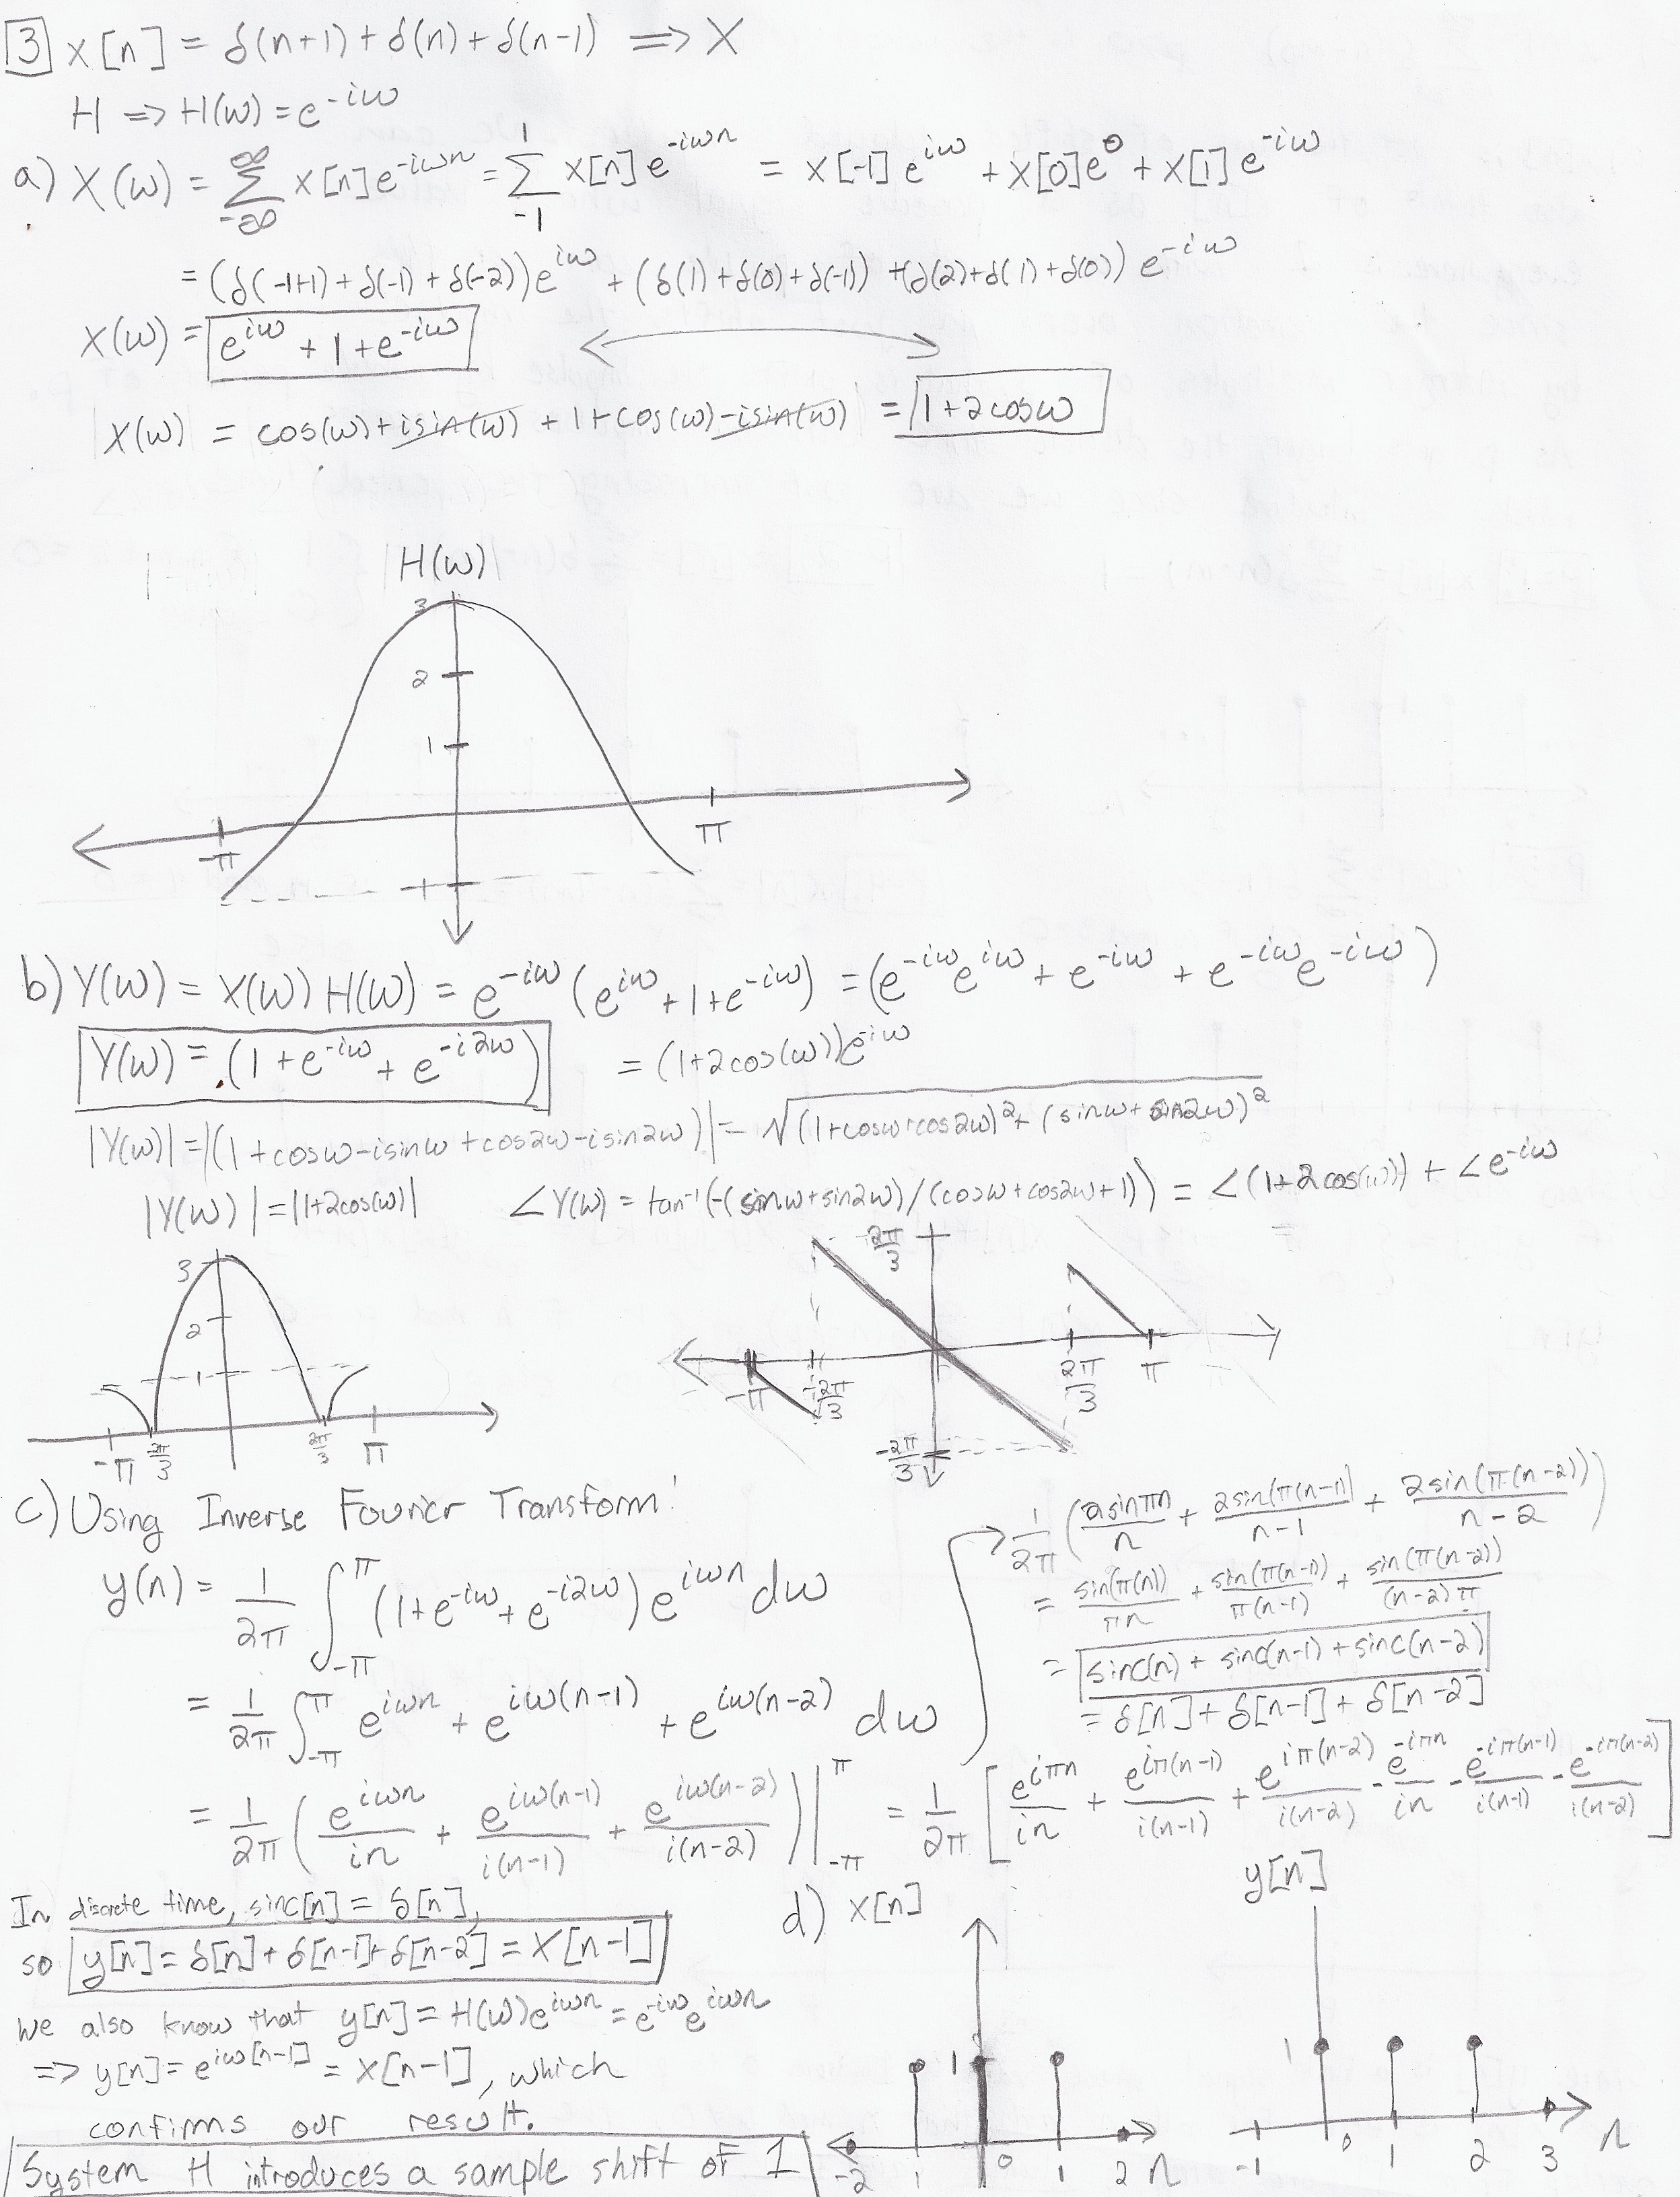 3 x[n] = δ(n+1) + δ(n) + δ(n-1) ⟹ X
H ⟹ H(ω) = e^{-iω}
a) X(ω) = ∑_{-∞}^{∞} x[n] e^{-iωn} = ∑_{-1}^{1} x[n] e^{-iωn} = x[-1] e^{iω} + x[0] e^0 + x[1] e^{-iω}
= (δ(-1+1) + δ(-1) + δ(-2)) e^{iω} + (δ(1) + δ(0) + δ(-1)) + (δ(2) + δ(1) + δ(0)) e^{-iω}
X(ω) = e^{iω} + 1 + e^{-iω}
X(ω) = cos(ω) + isin(ω) + 1 + cos(ω) - isin(ω) = 1 + 2cosω
H(ω)
3
2
1
-π π
-1
b) Y(ω) = X(ω) H(ω) = e^{-iω} (e^{iω} + 1 + e^{-iω}) = (e^{-iω} e^{iω} + e^{-iω} + e^{-iω} e^{-iω})
Y(ω) = (1 + e^{-iω} + e^{-i2ω}) = (1 + 2cos(ω)) e^{-iω}
|Y(ω)| = |(1 + cosω - isinω + cos2ω - isin2ω)| = √((1 + cosω + cos2ω)^2 + (sinω + sin2ω)^2
|Y(ω)| = |1 + 2cos(ω)| ∠Y(ω) = tan^{-1}(-(sinω + sin2ω) / (cosω + cos2ω + 1)) = ∠(1 + 2cos(ω)) + ∠e^{-iω}
3
2
1
-π -2π/3 2π/3 π
2π/3
-π -2π/3 2π/3 π
-2π/3
c) Using Inverse Fourier Transform:
y(n) = 1/2π ∫_{-π}^{π} (1 + e^{-iω} + e^{-i2ω}) e^{iωn} dω
= 1/2π ∫_{-π}^{π} e^{iωn} + e^{iω(n-1)} + e^{iω(n-2)} dω
= 1/2π (e^{iωn}/in + e^{iω(n-1)}/i(n-1) + e^{iω(n-2)}/i(n-2)) |_{-π}^{π} = 1/2π [e^{iπn}/in + e^{iπ(n-1)}/i(n-1) + e^{iπ(n-2)}/i(n-2) - e^{-iπn}/in - e^{-iπ(n-1)}/i(n-1) - e^{-iπ(n-2)}/i(n-2)]
→ 1/2π (2sinπn/n + 2sin(π(n-1)/n-1 + 2sin(π(n-2))/n-2)
= sin(π(n))/πn + sin(π(n-1))/π(n-1) + sin(π(n-2))/(n-2)π
= sinc(n) + sinc(n-1) + sinc(n-2)
= δ[n] + δ[n-1] + δ[n-2]
In discrete time, sinc[n] = δ[n],
so y[n] = δ[n] + δ[n-1] + δ[n-2] = x[n-1]
we also know that y[n] = H(ω) e^{iωn} = e^{-iω} e^{iωn}
⟹ y[n] = e^{iω[n-1]} = x[n-1], which
confirms our result.
System H introduces a sample shift of 1
d) x[n]
1
-2 1 0 1 2 n
y[n]
1
-1 0 1 2 3 n